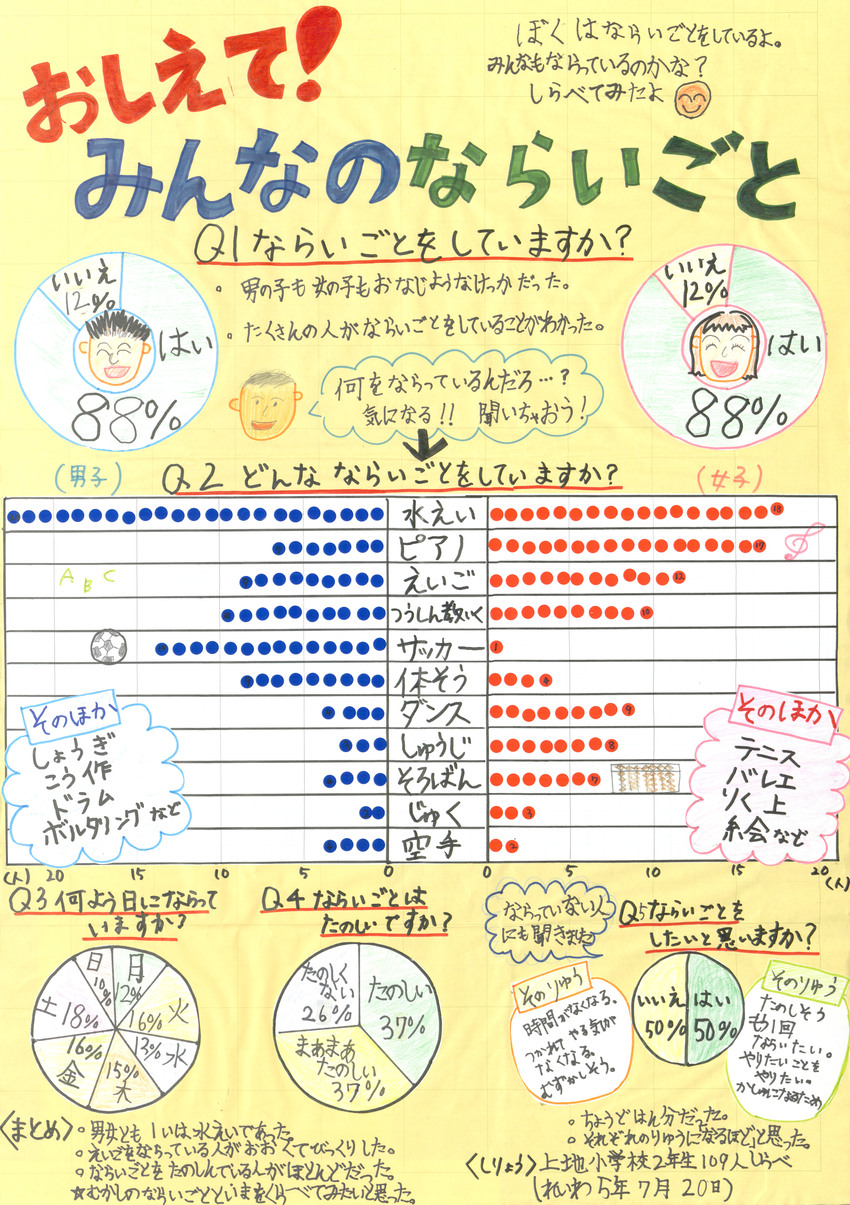 おしえて!
ぼくはならいごとをしているよ。
みんなもならっているのかな?
しらべてみたよ
みんなのならいごと
Q1ならいごとをしていますか?
いいえ
12%
はい
88%
(男子)
・男の子も女の子もおなじようなけっかだった。
・たくさんの人がならいごとをしていることがわかった。
何をならっているんだろ…?
気になる!! 聞いちゃおう!
いいえ
12%
はい
88%
(女子)
Q.2 どんなならいごとをしていますか?
水えい
18
ピアノ
17
A B C
えいご
12
つうしん教いく
10
サッカー
1
体そう
4
ダンス
9
しゅうじ
8
そろばん
7
じゅく
3
空手
2
そのほか
しょうぎ
こう作
ドラム
ボルダリングなど
そのほか
テニス
バレエ
りく上
絵会など
(人) 20 15 10 5 0 0 5 10 15 20 (人)
Q3何よう日にならって
いますか?
月
12%
16%火
13%水
15%
木
16%
金
土18%
日
10%
Q4ならいごとは
たのしいですか?
たのしい
37%
まぁまぁ
たのしい
37%
たのしく
ない
26%
ならっていない人
にも聞きました
Q5ならいごとを
したいと思いますか?
いいえ
50%
はい
50%
そのりゆう
時間がなくなる。
つかれて やる気が
なくなる。
むずかしそう。
そのりゆう
たのしそう
も1回
ならいたい。
やりたいことを
やりたい。
かしゅになるため
・ちょうどはん分だった。
・それぞれのりゆうに「なるほど」と思った。
〈まとめ〉
・男女とも1いは水えいであった。
・えいごをならっている人がおおくてびっくりした。
・ならいごとをたのしんでいる人がほとんどだった。
☆むかしのならいごとといまをくらべてみたいと思った。
〈しりょう〉上地小学校2年生109人しらべ
(れいわ5年7月20日)